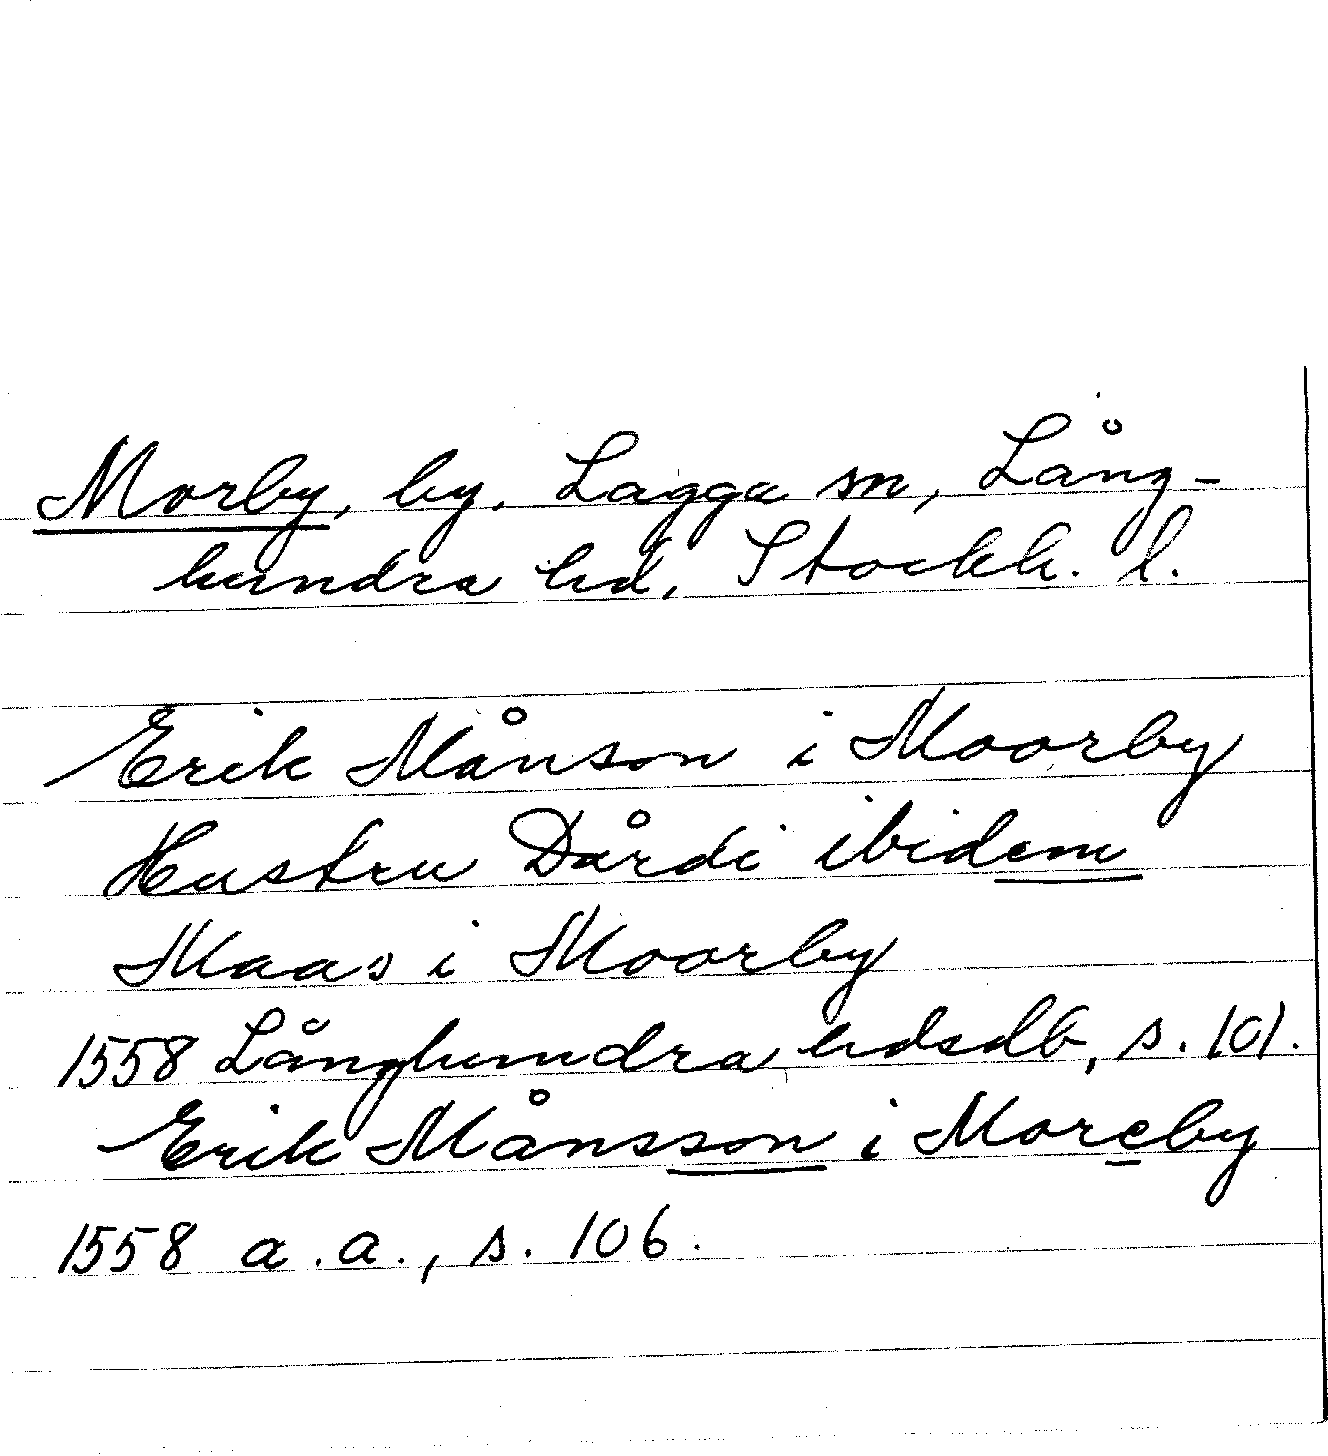 Morby, by, Lagga sn, Lång-
hundra hd, Stockh. l.
Erik Månson i Moorby
Hustru Dårdi ibidem
Maas i Moorby
1558 Långhundra hdsdb, s. 101.
Erik Månsson i Moreby
1558 a.a., s. 106.